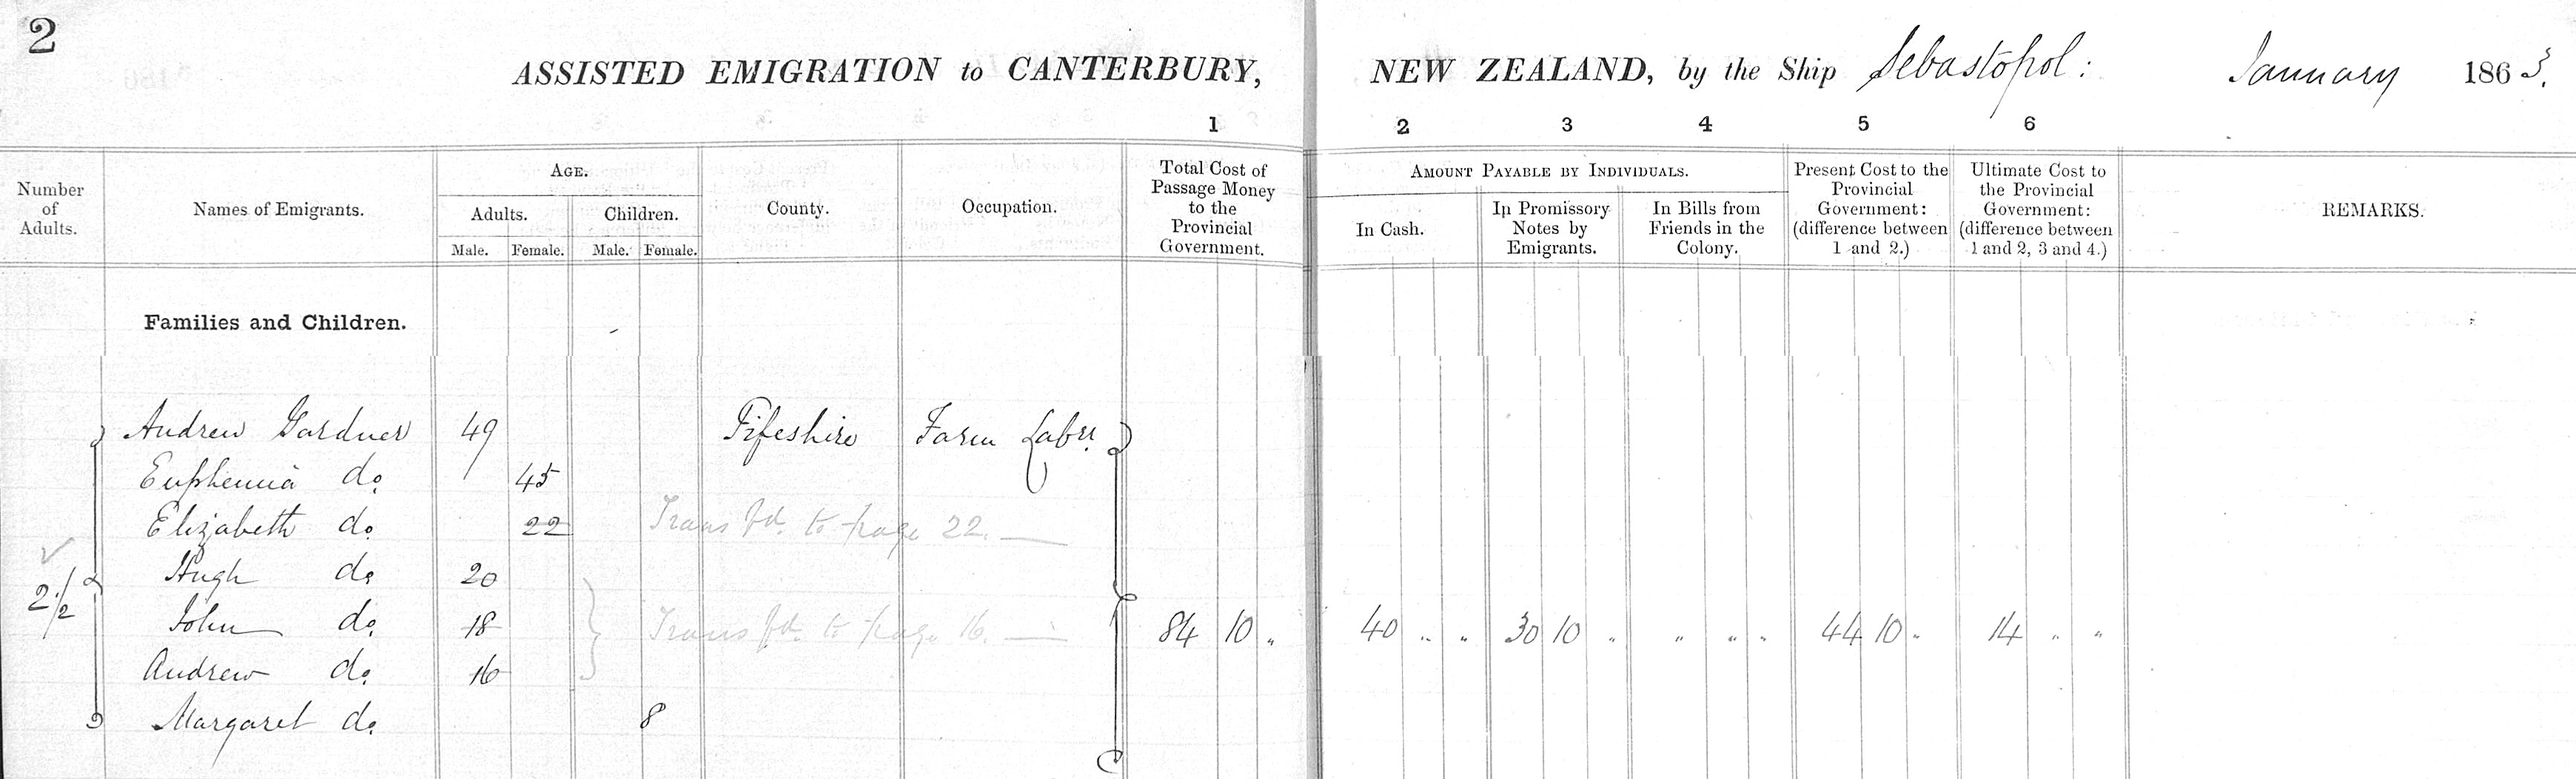 2
ASSISTED EMIGRATION to CANTERBURY, NEW ZEALAND, by the Ship Sebastopol: January 1863.
1 2 3 4 5 6
Number of Adults.
Names of Emigrants.
AGE.
Adults. Children.
Male. Female. Male. Female.
County.
Occupation.
Total Cost of Passage Money to the Provincial Government.
AMOUNT PAYABLE BY INDIVIDUALS.
In Cash.
In Promissory Notes by Emigrants.
In Bills from Friends in the Colony.
Present Cost to the Provincial Government: (difference between 1 and 2.)
Ultimate Cost to the Provincial Government: (difference between 1 and 2, 3 and 4.)
REMARKS.
Families and Children.
Andrew Gardner 49 Fifeshire Farm Labr.
Euphemia do. 45
Elizabeth do. 22 Transfd. to page 22.
Hugh do. 20
2 1/2 John do. 18 Transfd. to page 16. 84 10 " 40 " " 30 10 " " " " 44 10 " 14 " "
Andrew do. 16
Margaret do. 8